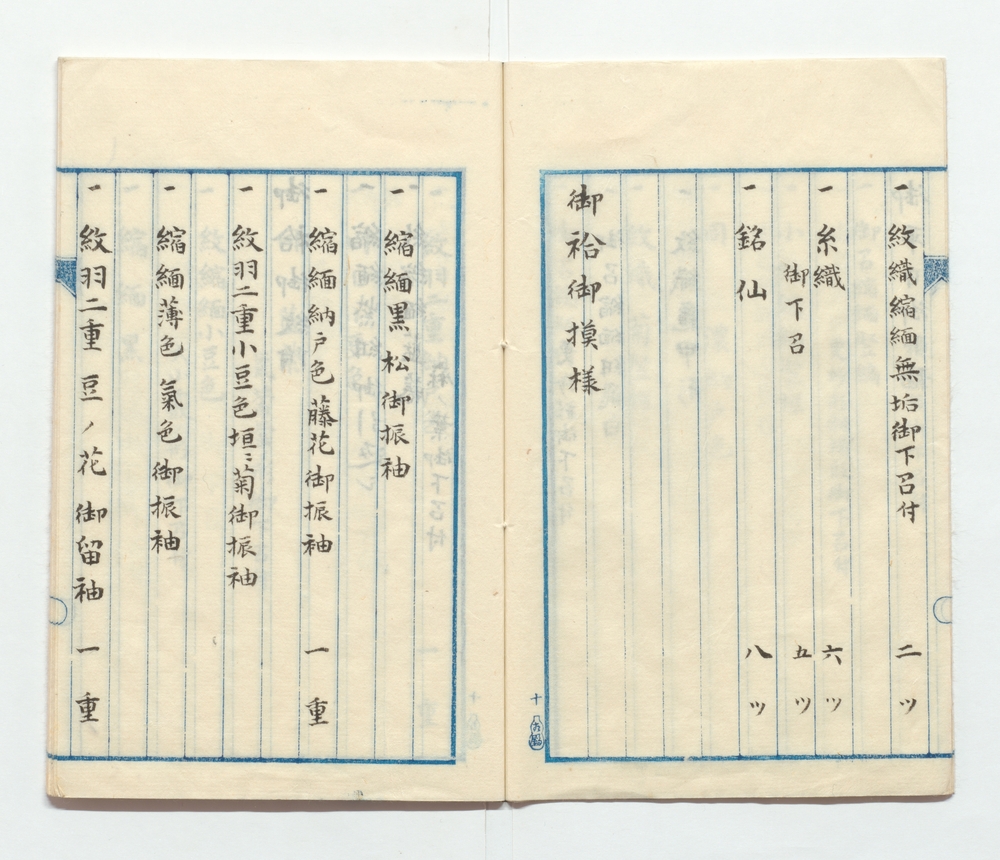 一 紋織縮緬無垢御下召付 二ツ
一 糸織 六ツ
御下召 五ツ
一 銘仙 八ツ
御袷御摸様
十
一 縮緬黒 松御振袖
一 縮緬納戸色 藤花御振袖 一重
一 紋羽二重小豆色垣ニ菊御振袖
一 縮緬薄色 氣色御振袖
一 紋羽二重 豆ノ花 御留袖 一重